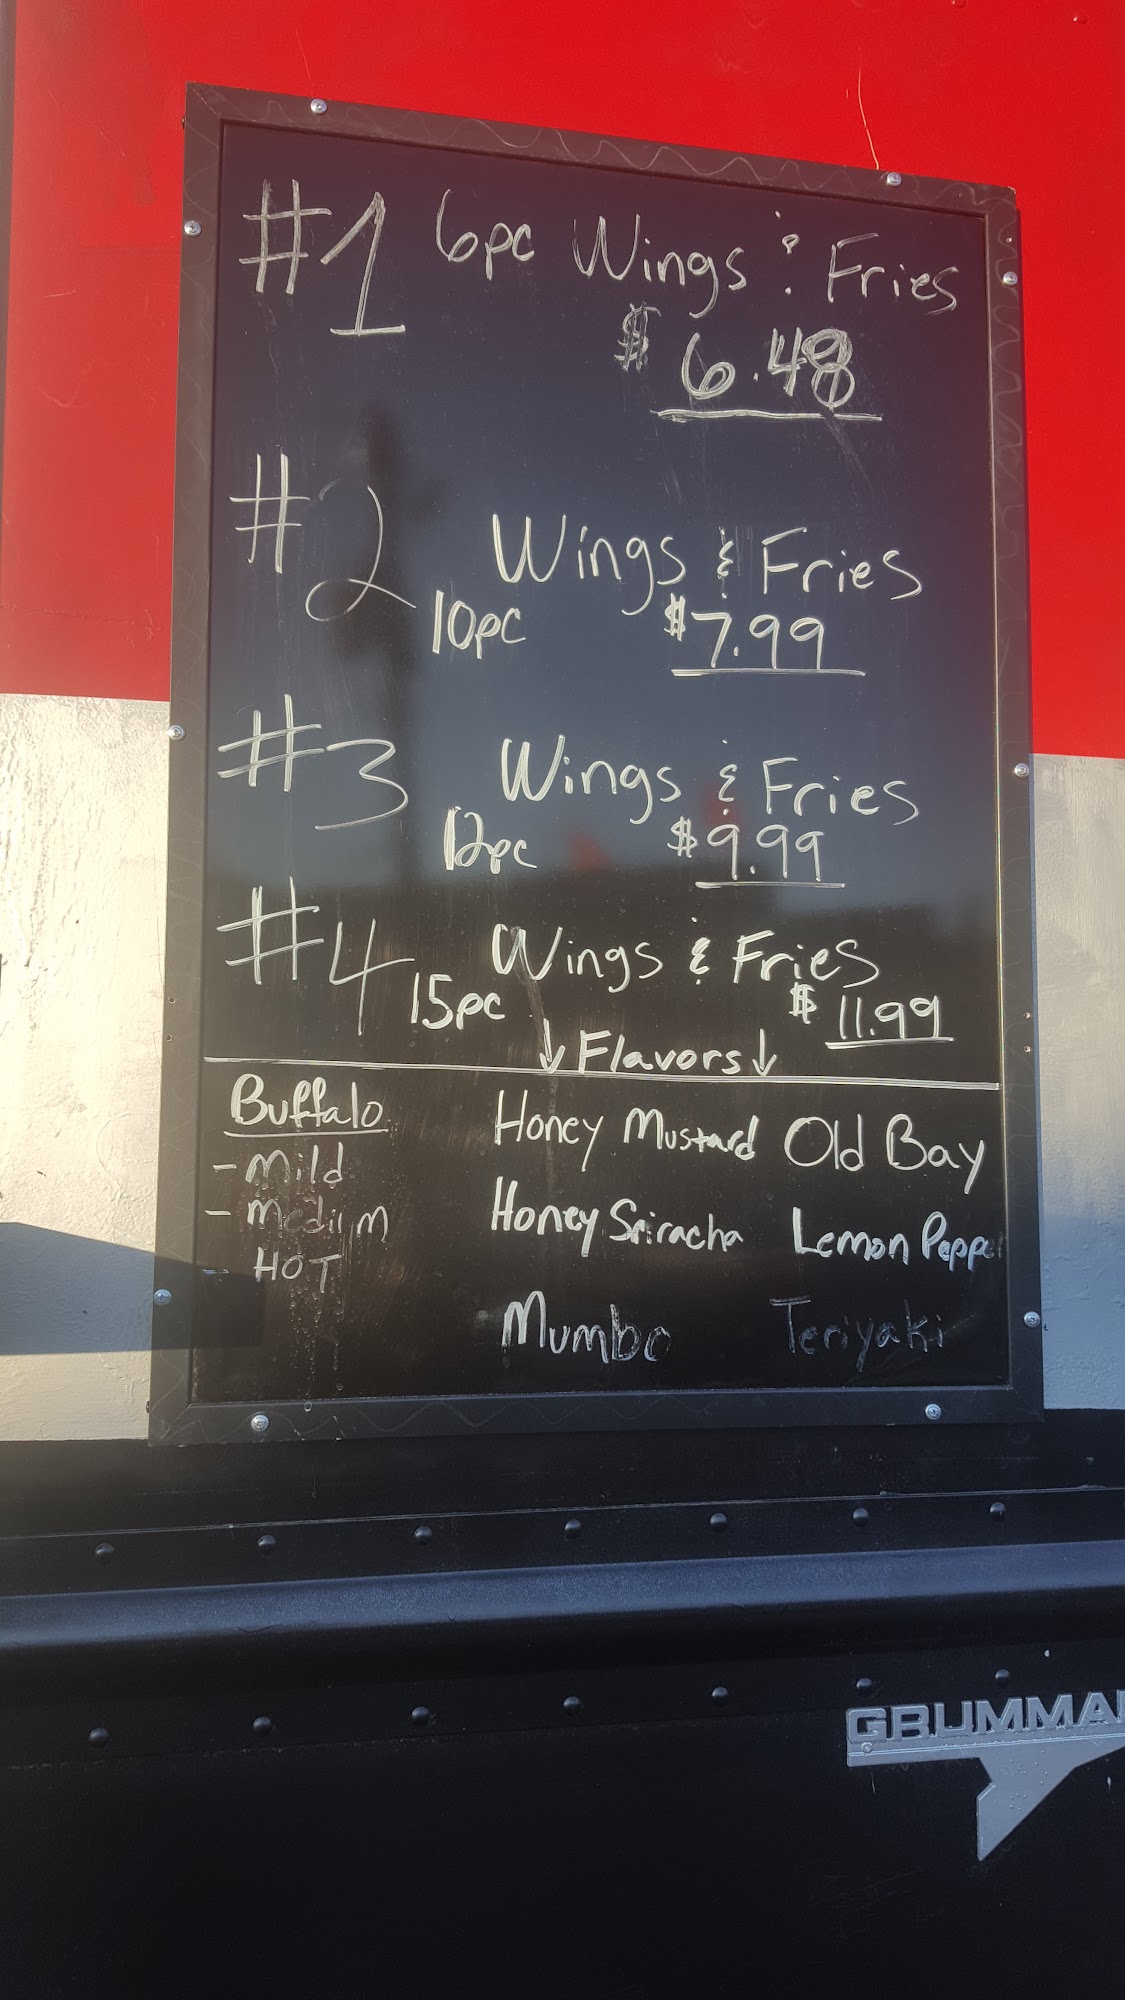 #1 6pc Wings & Fries
$6.48
#2 Wings & Fries
10pc $7.99
#3 Wings & Fries
12pc $9.99
#4 Wings & Fries
15pc $11.99
↓ Flavors ↓
Buffalo Honey Mustard Old Bay
- Mild
- Medium Honey Sriracha Lemon Pepper
- HOT
Mumbo Teriyaki
GRUMMA